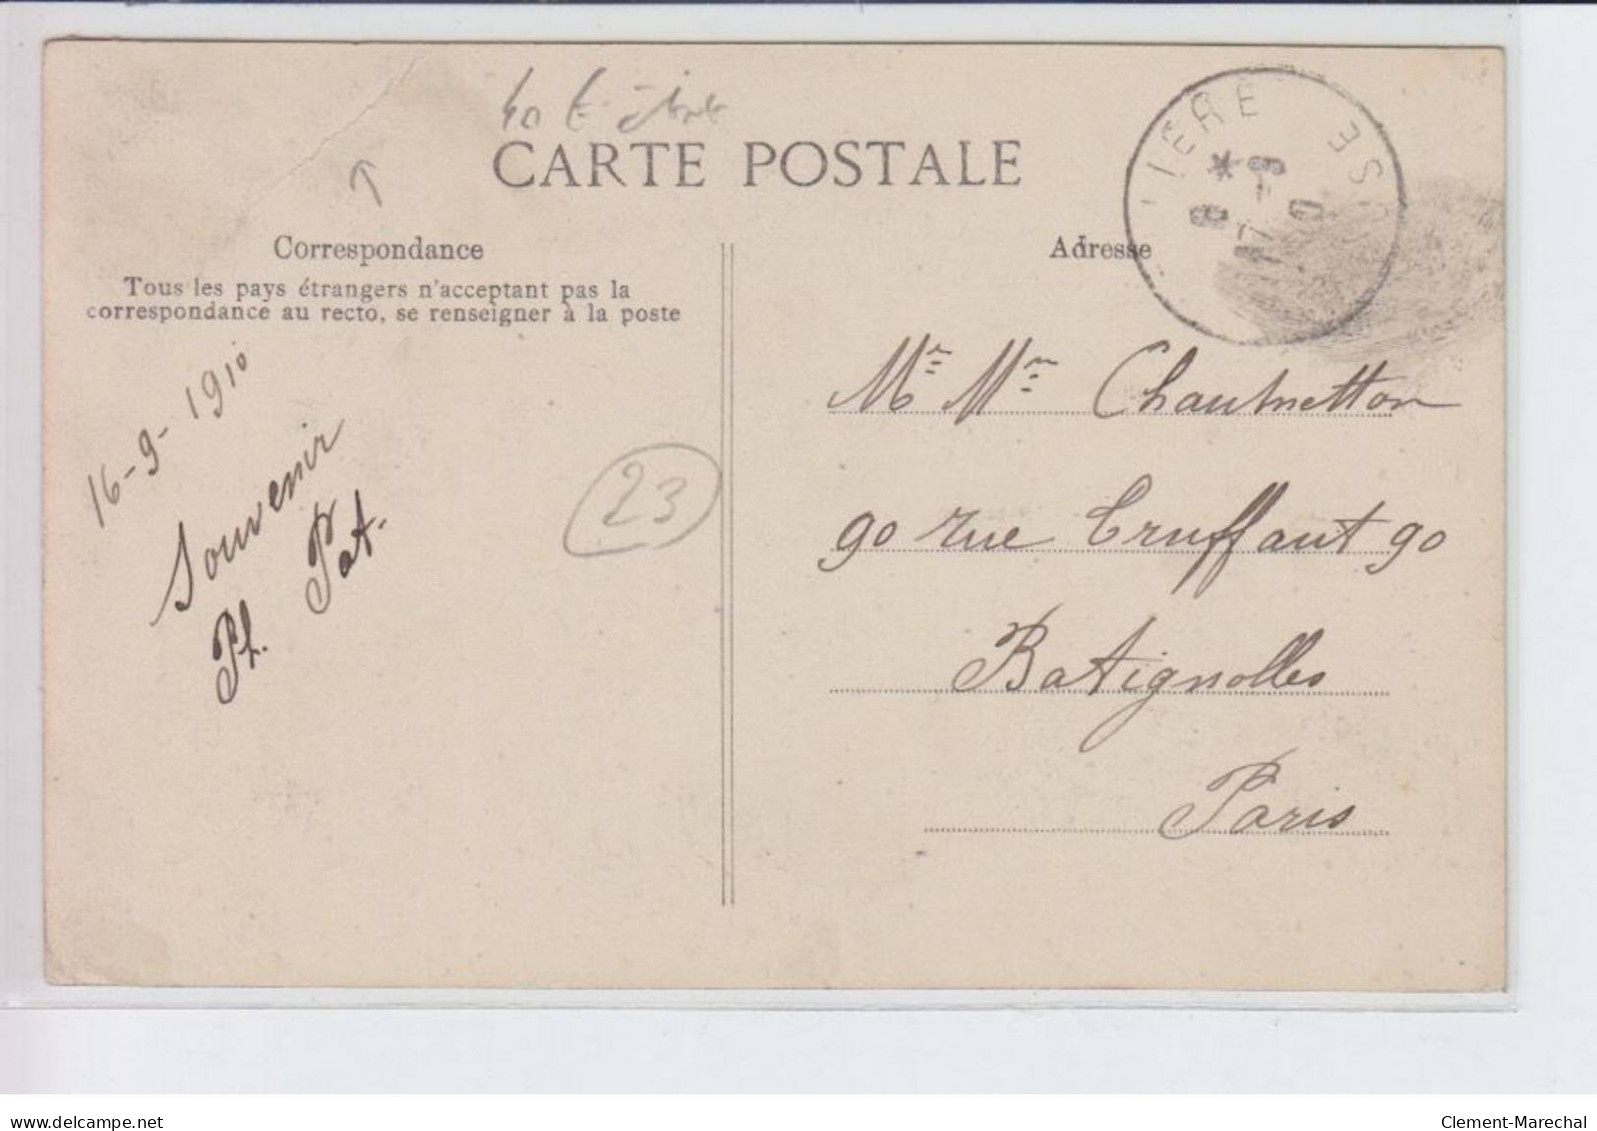 CARTE POSTALE
Correspondance
Tous les pays étrangers n'acceptant pas la
correspondance au recto, se renseigner à la poste
16-9-1910
Souvenir
Ph. Pat.
23
Adresse
IERE
8 *
17-9
10
Mr Mm
90 rue Truffaut 90
Batignolles
Paris
delcampe.net
Clement-Marechal